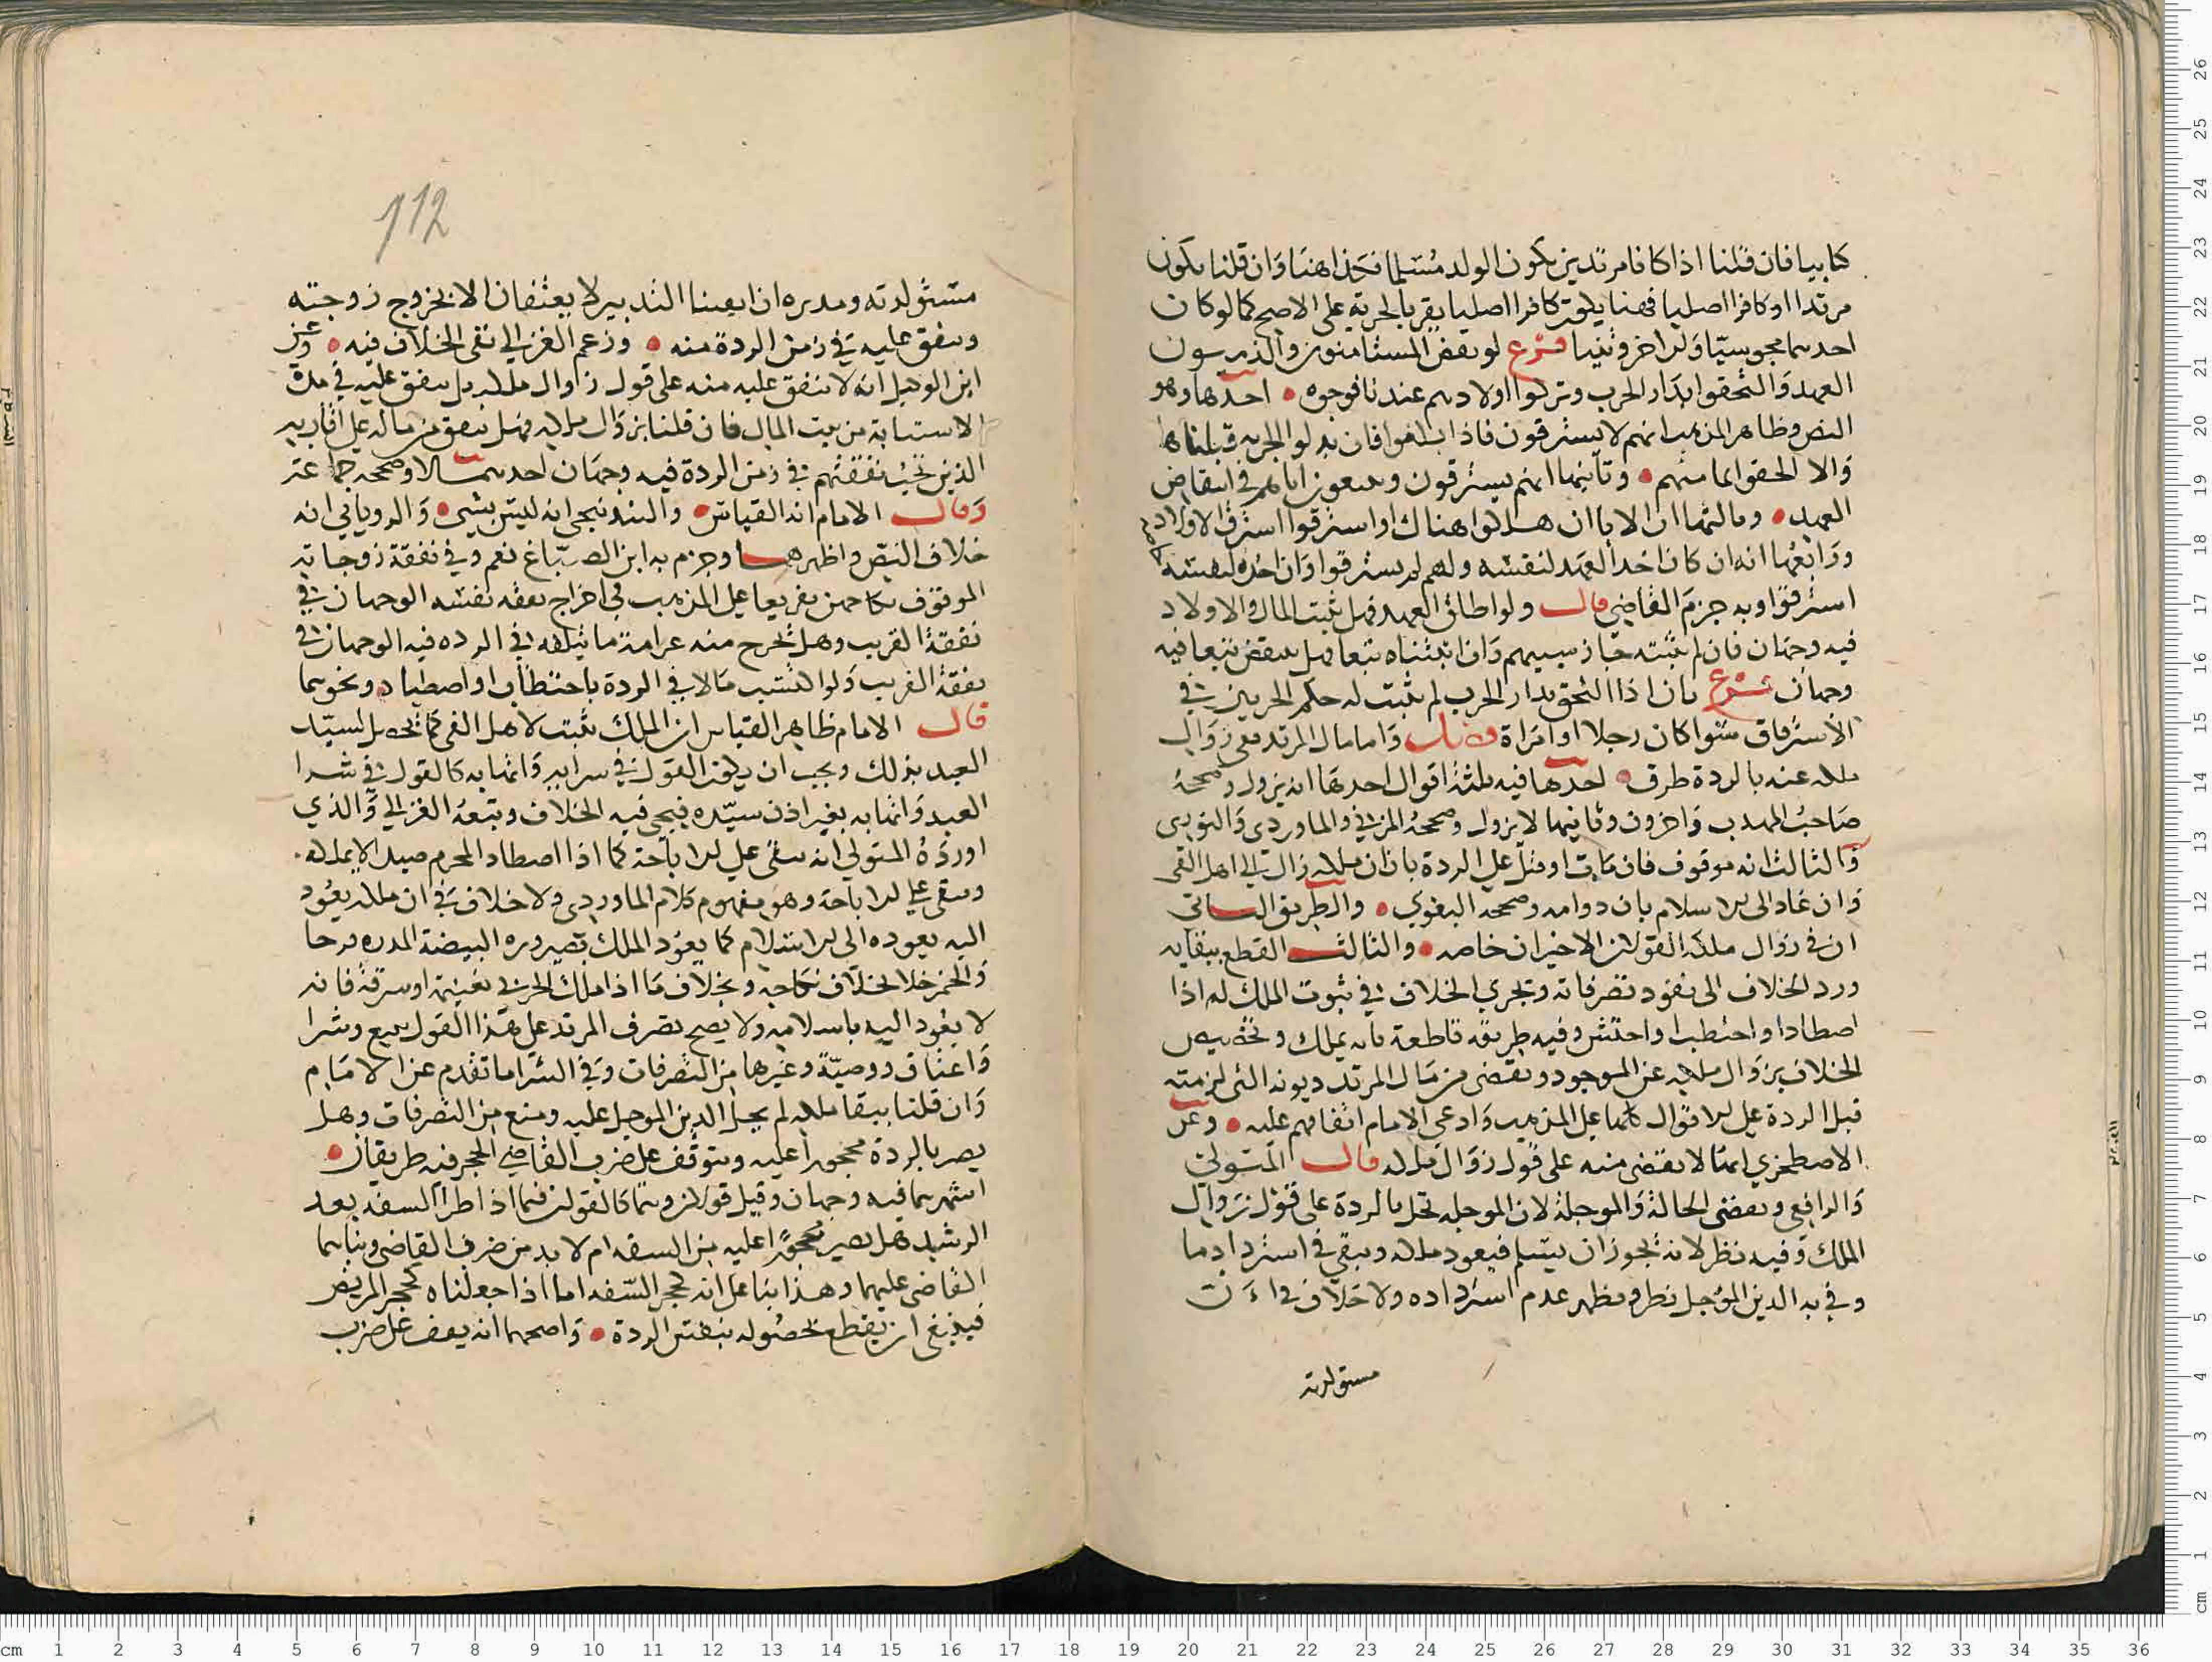 كتابيا فان قلنا اذا كانا مرتدين يكون الولد مسلما فكذا هنا وان قلنا يكون
مرتدا او كافرا اصليا فهنا يكون كافرا اصليا يقر بالجزية على الاصح كما لو كان
احدهما مجوسيا والاخر وثنيا فرع لو نقض المستامنون والذميون
العهد والتحقوا بدار الحرب وتركوا اولادهم عندنا فوجوه احدها وهو
النص وظاهر المذهب انهم لا يسترقون فاذا بلغوا فان بذلوا الجزية قبلناها
والا الحقوا بمامنهم وثانيها انهم يسترقون ويتبعون اباهم في انتقاض
العهد وثالثها ان الابا ان هلكوا هناك او استرقوا استرق الاولاد
ورابعها انه ان كان اخذ العهد لنفسه ولهم لم يسترقوا وان اخذه لنفسه
استرقوا وبه جزم القاضي قال ولو اطلق العهد فهل يثبت المال والاولاد
فيه وجهان فان لم نثبته جاز سبيهم وان اثبتناه تبعا فهل ينقض تبعا فيه
وجهان فرع بان اذا التحق بدار الحرب لم يثبت له حكم الحربيين في
الاسترقاق سوا كان رجلا او امراة فصل واما مال المرتد ففي زوال
ملكه عنه بالردة طرق احدها فيه ثلثة اقوال احدها انه يزول وصححه
صاحب المهذب واخرون وثانيها لا يزول وصححه المزني والماوردي والنووي
والثالث انه موقوف فان مات او قتل على الردة بان ان ملكه زال الى اهل الفي
وان عاد الى الاسلام بان دوامه وصححه البغوي والطريق الثاني
ان في زوال ملكه القولان الاخيران خاصه والثالث القطع ببقايه
ورد الخلاف الى نفود تصرفاته وتجري الخلاف في ثبوت الملك له اذا
اصطاد او احتطب او احتش وفيه طريقه قاطعة بانه يملك وتخصيص
الخلاف بزوال ملكه عن الموجود ويقضى من مال المرتد ديونه التي لزمته
قبل الردة على الاقوال كلها على المذهب وادعى الامام اتفاقهم عليه وعن
الاصطخري انها لا يقضى منه على قول زوال ملكه قال المتولي
والرافعي ويقضى الحالة والموجلة لان الموجله تحل بالردة على قول زوال
الملك وفيه نظر لانه يجوز ان يسلم فيعود ملكه ويبقى في استرداد ما
وفي به الدين الموجل نظر ويظهر عدم استرداده ولا خلاف في ان
مستولدته
112
مستولدته ومدبره اذا بقينا التدبير لا يعتقان الا بخروج زوجته
وينفق عليه في زمن الردة منه وزعم الغزالي نفي الخلاف فيه وعن
ابن الوكيل انه لا ينفق عليه منه على قول زوال ملكه بل ينفق عليه في مدة
الاستتابة من بيت المال فان قلنا بزوال ملكه فهل ينفق من ماله على اقاربه
الذين تجب نفقتهم في زمن الردة فيه وجهان احدهما لا وصححه جماعة
وقال الامام انه القياس والبندنيجي انه ليس بشي والروياني انه
خلاف النص واظهرهما وجزم به ابن الصباغ نعم وفي نفقة زوجاته
الموقوف نكاحهن تفريعا على المذهب في اخراج نفقه نفسه الوجهان في
نفقة القريب وهل تخرج منه غرامة ما يتلفه في الرده فيه الوجهان في
نفقة القريب ولو اكتسب مالا في الردة باحتطاب او اصطياد ونحوهما
قال الامام ظاهر القياس ان الملك يثبت لاهل الفي كما يحصل لسيد
العبد بذلك ويجب ان يكون القول في سرايه واتهابه كالقول في شرا
العبد واتهابه بغير اذن سيده فيجي فيه الخلاف وتبعه الغزالي والذي
اورده المتولي انه يبقى على الاباحة كما اذا اصطاد المحرم صيدا لا يملكه
ويبقى على الاباحة وهو مفهوم كلام الماوردي ولا خلاف في ان ملكه يعود
اليه بعوده الى الاسلام كما يعود الملك بصيروره البيضة المدره فرخا
والخمر خلا بخلاف نكاحه وبخلاف ما اذا ملك الحربي بغنيمة او سرقة فانه
لا يعود اليه باسلامه ولا يصح تصرف المرتد على هذا القول ببيع وشرا
واعتاق ووصية وغيرها من التصرفات وفي الشرا ما تقدم عن الامام
وان قلنا ببقا ملكه لم يحل الدين الموجل عليه ومنع من التصرفات وهل
يصير بالردة محجورا عليه ويتوقف على ضرب القاضي الحجر فيه طريقان
اشهرهما فيه وجهان وقيل قولان وهما كالقولين فيما اذا طرا السفه بعد
الرشد هل يصير محجورا عليه بنفس السفه ام لا بد من ضرب القاضي وبناهما
القاضي عليهما وهذا بنا على انه كحجر السفه اما اذا جعلناه كحجر المريض
فينبغي ان يقطع بحصوله بنفس الردة واصحهما انه يقف على ضرب